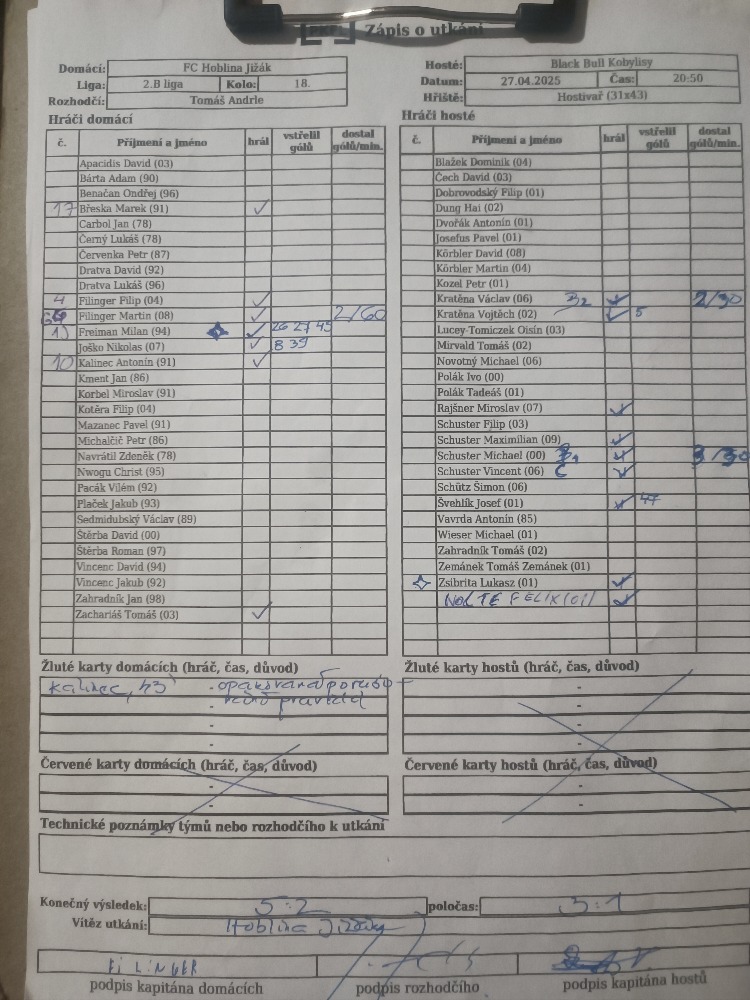 PKFL Zápis o utkání
Domácí: FC Hoblina Jižák Hosté: Black Bull Kobylisy
Liga: 2.B liga Kolo: 18. Datum: 27.04.2025 Čas: 20:50
Rozhodčí: Tomáš Andrle Hřiště: Hostivař (31x43)
Hráči domácí
č. Příjmení a jméno hrál vstřelil gólů dostal gólů/min.
Apacidis David (03)
Bárta Adam (90)
Benačan Ondřej (96)
17 Břeska Marek (91) ✓
Carbol Jan (78)
Černý Lukáš (78)
Červenka Petr (87)
Dratva David (92)
Dratva Lukáš (96)
4 Filinger Filip (04) ✓
Filinger Martin (08) ✓ 2/60
Freiman Milan (94) ✓ 26 27 45
Joško Nikolas (07) ✓ 8 39
10 Kalinec Antonín (91) ✓
Kment Jan (86)
Korbel Miroslav (91)
Kotěra Filip (04)
Mazanec Pavel (91)
Michalčič Petr (86)
Navrátil Zdeněk (78)
Nwogu Christ (95)
Pacák Vilém (92)
Plaček Jakub (93)
Sedmidubský Václav (89)
Štěrba David (00)
Štěrba Roman (97)
Vincenc David (94)
Vincenc Jakub (92)
Zahradník Jan (98)
Zachariáš Tomáš (03) ✓
Hráči hosté
č. Příjmení a jméno hrál vstřelil gólů dostal gólů/min.
Blažek Dominik (04)
Čech David (03)
Dobrovodský Filip (01)
Dung Hai (02)
Dvořák Antonín (01)
Josefus Pavel (01)
Körbler David (08)
Körbler Martin (04)
Kozel Petr (01)
Kratěna Václav (06) B2 ✓ 2/30
Kratěna Vojtěch (02) ✓ 5
Lucey-Tomiczek Oisín (03)
Mirvald Tomáš (02)
Novotný Michael (06)
Polák Ivo (00)
Polák Tadeáš (01)
Rajšner Miroslav (07) ✓
Schuster Filip (03)
Schuster Maximilian (09) ✓
Schuster Michael (00) B1 ✓ 3/30
Schuster Vincent (06) C ✓
Schütz Šimon (06)
Švehlík Josef (01) ✓ 47
Vavrda Antonín (85)
Wieser Michael (01)
Zahradník Tomáš (02)
Zemánek Tomáš Zemánek (01)
Zsibrita Lukasz (01) ✓
NOLTE FELIX (01) ✓
Žluté karty domácích (hráč, čas, důvod)
Kalinec, 43' - opakovaná porušo-
vání pravidel
-
-
-
Červené karty domácích (hráč, čas, důvod)
-
-
Žluté karty hostů (hráč, čas, důvod)
-
-
-
-
Červené karty hostů (hráč, čas, důvod)
-
-
Technické poznámky týmů nebo rozhodčího k utkání
Konečný výsledek: 5:2 poločas: 3:1
Vítěz utkání: Hoblina Jižák
FILINGER
podpis kapitána domácích podpis rozhodčího podpis kapitána hostů